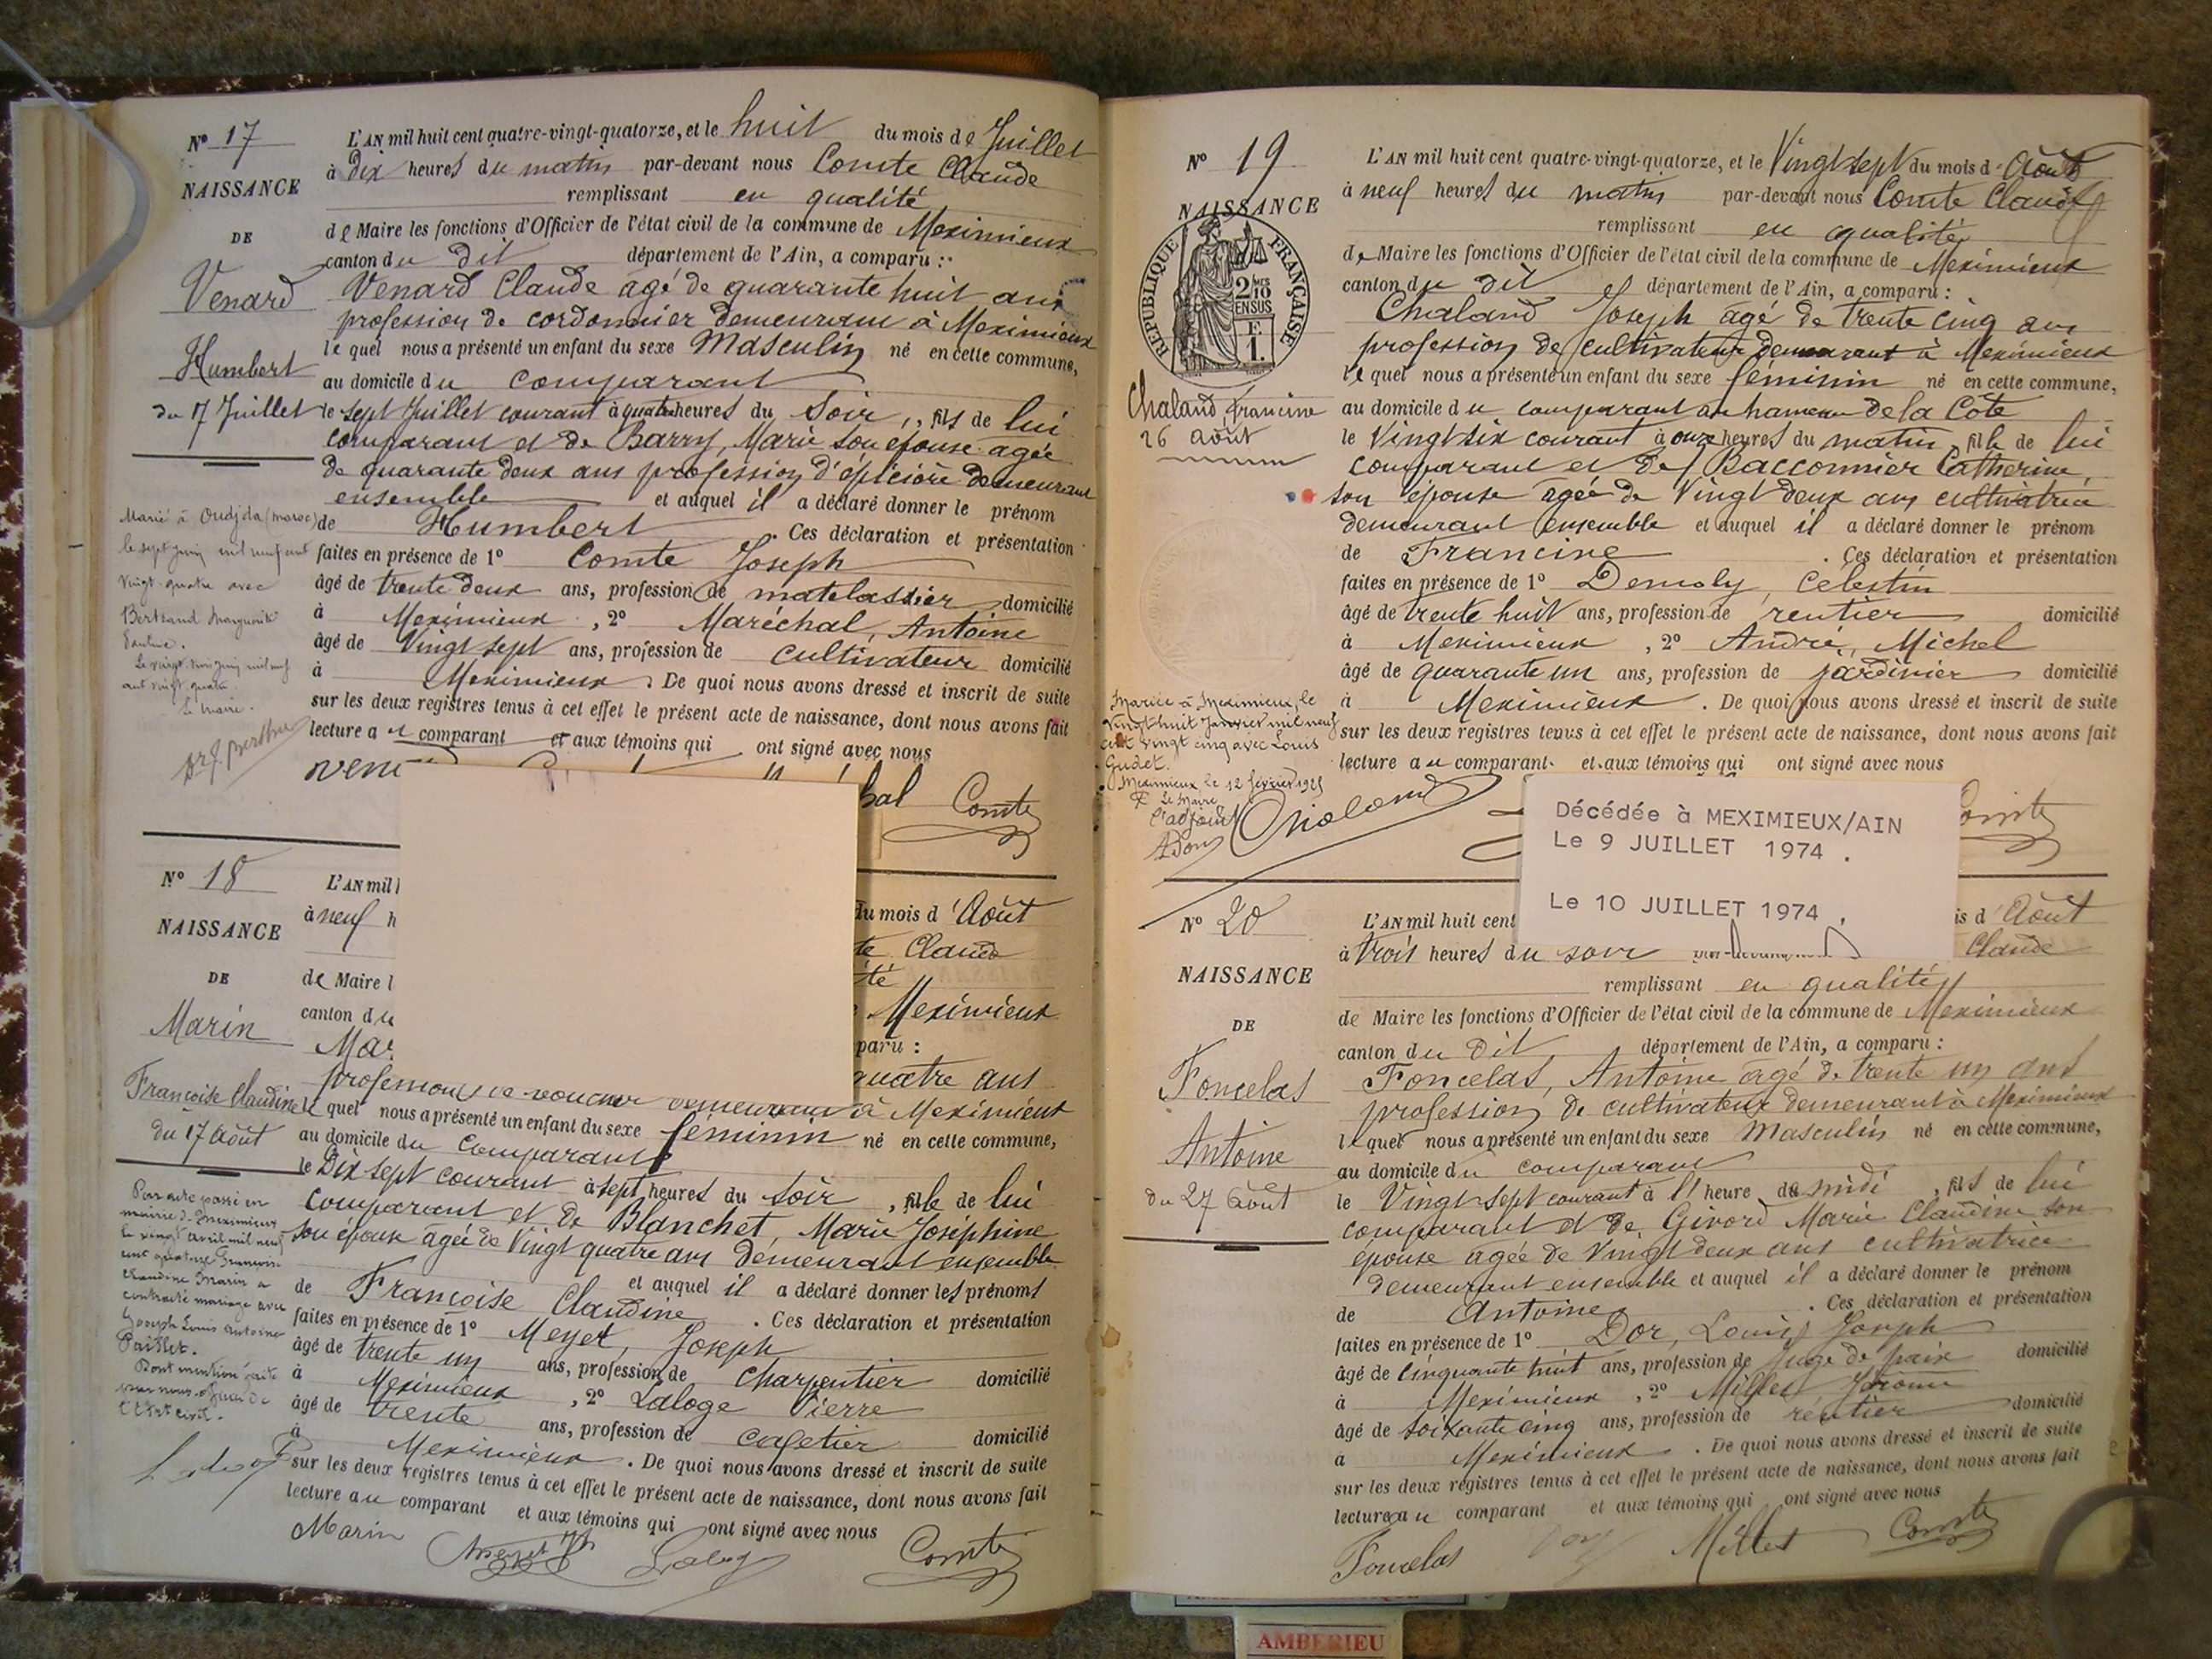 Nº 17
NAISSANCE
DE
Venard
Humbert
du 7 Juillet
L'AN mil huit cent quatre-vingt-quatorze, et le huit du mois de Juillet
à Dix heures du matin par-devant nous Comte Claude
remplissant en qualité
de Maire les fonctions d'Officier de l'état civil de la commune de Meximieux
canton du dit département de l'Ain, a comparu :
Venard Claude agé de quarante huit ans
profession de cordonnier demeurant à Meximieux
lequel nous a présenté un enfant du sexe Masculin né en cette commune,
au domicile du comparant
le sept Juillet courant à quatre heures du Soir, fils de lui
comparant et de Barry, Marie son épouse agée
de quarante deux ans profession d'épicière demeurant
ensemble et auquel il a déclaré donner le prénom
de Humbert. Ces déclaration et présentation
faites en présence de 1º Comte Joseph
âgé de trente deux ans, profession de matelassier domicilié
à Meximieux, 2º Maréchal, Antoine
âgé de Vingt sept ans, profession de cultivateur domicilié
à Meximieux. De quoi nous avons dressé et inscrit de suite
sur les deux registres tenus à cet effet le présent acte de naissance, dont nous avons fait
lecture au comparant et aux témoins qui ont signé avec nous
Comte
Marié à Oudjda (maroc)
le sept Juin mil neuf cent
vingt quatre avec
Bertrand Marguerite
Le Maire.
Nº 18
NAISSANCE
DE
Marin
Françoise Claudine
du 17 Août
L'AN mil
à neuf h
du mois d'Août
Claude
de Maire l
Meximieux
canton du
paru :
quatre ans
profession de demeurant à Meximieux
lequel nous a présenté un enfant du sexe féminin né en cette commune,
au domicile du comparant
le Dix sept courant à sept heures du soir, fille de lui
comparant et de Blanchet, Marie Joséphine
son épouse agée de Vingt quatre ans demeurant ensemble
et auquel il a déclaré donner les prénoms
de Françoise Claudine. Ces déclaration et présentation
faites en présence de 1º Meyet, Joseph
âgé de trente un ans, profession de Charpentier domicilié
à Meximieux, 2º Laloge Pierre
âgé de trente ans, profession de cafetier domicilié
à Meximieux. De quoi nous avons dressé et inscrit de suite
sur les deux registres tenus à cet effet le présent acte de naissance, dont nous avons fait
lecture au comparant et aux témoins qui ont signé avec nous
Marin Comte
Par acte passé en
mairie de Meximieux
le vingt avril mil neuf
cent quatorze Françoise
Claudine Marin a
contracté mariage avec
Joseph Louis Antoine
Paillet.
Dont mention faite
par nous officier de
l'Etat civil.
Nº 19
NAISSANCE
REPUBLIQUE FRANÇAISE
2 10MES
EN SUS
F.
1.
Chaland Francine
26 août
L'AN mil huit cent quatre-vingt-quatorze, et le Vingt sept du mois d'Août
à neuf heures du matin par-devant nous Comte Claude
remplissant en qualité
de Maire les fonctions d'Officier de l'état civil de la commune de Meximieux
canton du dit département de l'Ain, a comparu :
Chaland Joseph agé de trente cinq ans
profession de cultivateur demeurant à Meximieux
lequel nous a présenté un enfant du sexe féminin né en cette commune,
au domicile du comparant au hameau de la Côte
le Vingt six courant à onze heures du matin, fille de lui
comparant et de Bacconnier Catherine
son épouse agée de Vingt deux ans cultivatrice
demeurant ensemble et auquel il a déclaré donner le prénom
de Francine. Ces déclaration et présentation
faites en présence de 1º Demoly, Célestin
âgé de trente huit ans, profession de rentier domicilié
à Meximieux, 2º André, Michel
âgé de quarante un ans, profession de jardinier domicilié
à Meximieux. De quoi nous avons dressé et inscrit de suite
sur les deux registres tenus à cet effet le présent acte de naissance, dont nous avons fait
lecture au comparant et aux témoins qui ont signé avec nous
Chaland Comte
Mariée à Meximieux, le
Vingt huit Janvier mil neuf
cent vingt cinq avec Louis
Gudet.
Meximieux le 12 février 1925
Le Maire,
L'adjoint
Décédée à MEXIMIEUX/AIN
Le 9 JUILLET 1974 .
Le 10 JUILLET 1974 .
Nº 20
NAISSANCE
DE
Foncelas
Antoine
du 27 Août
L'AN mil huit cent
is d'Août
à trois heures du soir
Claude
remplissant en qualité
de Maire les fonctions d'Officier de l'état civil de la commune de Meximieux
canton du dit département de l'Ain, a comparu :
Foncelas, Antoine agé de trente un ans
profession de cultivateur demeurant à Meximieux
lequel nous a présenté un enfant du sexe Masculin né en cette commune,
au domicile du comparant
le Vingt sept courant à 1 heure de midi, fils de lui
comparant et de Givord Marie Claudine son
épouse agée de Vingt deux ans cultivatrice
demeurant ensemble et auquel il a déclaré donner le prénom
de Antoine. Ces déclaration et présentation
faites en présence de 1º Dor, Louis Joseph
âgé de cinquante huit ans, profession de Juge de paix domicilié
à Meximieux, 2º Millet Jérôme
âgé de soixante cinq ans, profession de rentier domicilié
à Meximieux. De quoi nous avons dressé et inscrit de suite
sur les deux registres tenus à cet effet le présent acte de naissance, dont nous avons fait
lecture au comparant et aux témoins qui ont signé avec nous
Foncelas Millet Comte
AMBERIEU